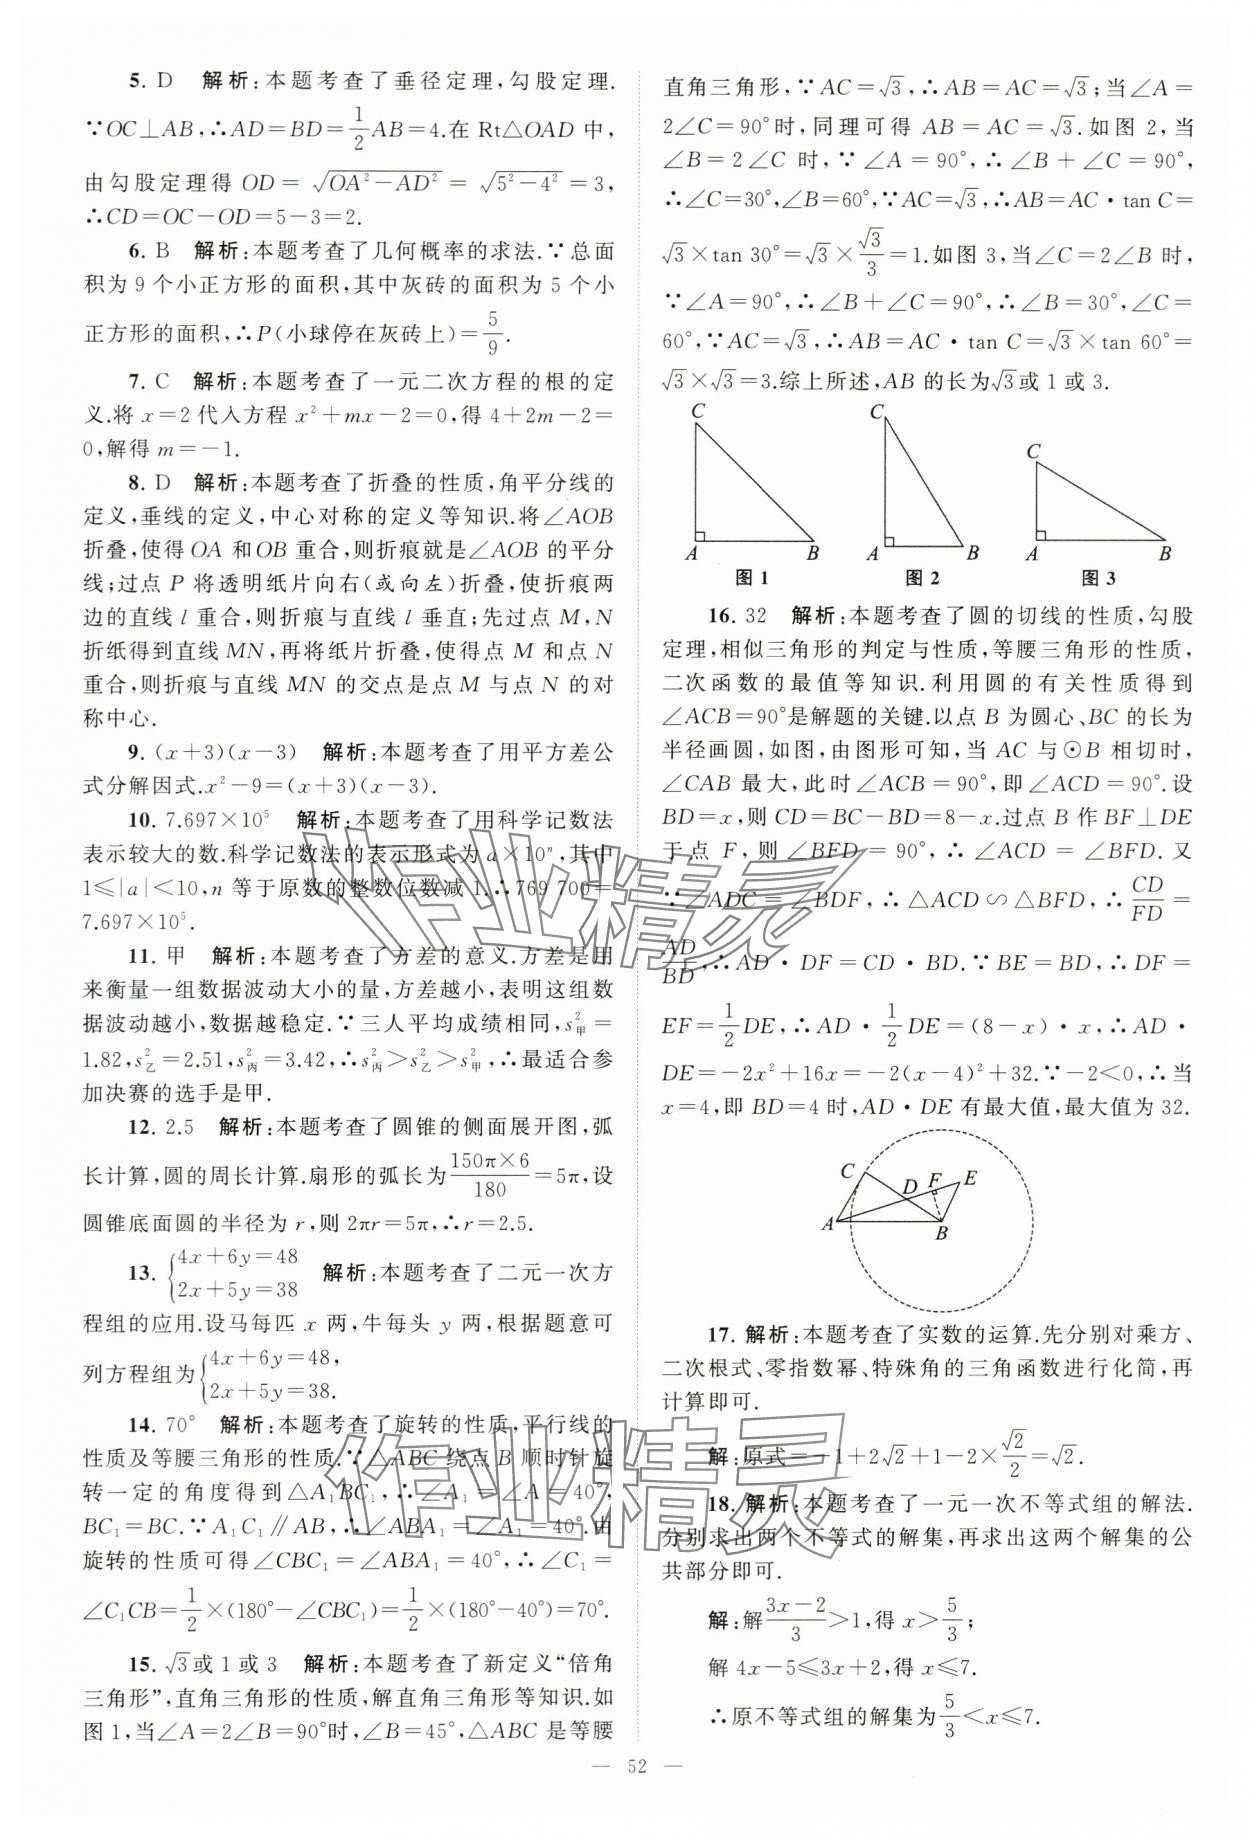 5. D 解析:本题考查了垂径定理,勾股定理.
∵OC⊥AB,∴AD=BD=1/2AB=4.在 Rt△OAD 中,
由勾股定理得 OD=√(OA²-AD²)=√(5²-4²)=3,
∴CD=OC-OD=5-3=2.
6. B 解析:本题考查了几何概率的求法.∵总面
积为 9 个小正方形的面积,其中灰砖的面积为 5 个小
正方形的面积,∴P(小球停在灰砖上)=5/9.
7. C 解析:本题考查了一元二次方程的根的定
义.将 x=2 代入方程 x²+mx-2=0,得 4+2m-2=
0,解得 m=-1.
8. D 解析:本题考查了折叠的性质,角平分线的
定义,垂线的定义,中心对称的定义等知识.将∠AOB
折叠,使得 OA 和OB 重合,则折痕就是∠AOB 的平分
线;过点 P 将透明纸片向右(或向左)折叠,使折痕两
边的直线 l 重合,则折痕与直线 l 垂直;先过点 M,N
折纸得到直线 MN,再将纸片折叠,使得点 M 和点 N
重合,则折痕与直线 MN 的交点是点 M 与点 N 的对
称中心.
9. (x+3)(x-3) 解析:本题考查了用平方差公
式分解因式.x²-9=(x+3)(x-3).
10. 7.697×10⁵ 解析:本题考查了用科学记数法
表示较大的数.科学记数法的表示形式为 a×10ⁿ,其中
1≤|a|<10,n 等于原数的整数位数减 1.∴769 700=
7.697×10⁵.
11. 甲 解析:本题考查了方差的意义.方差是用
来衡量一组数据波动大小的量,方差越小,表明这组数
据波动越小,数据越稳定.∵三人平均成绩相同,s²甲=
1.82,s²乙=2.51,s²丙=3.42,∴s²丙>s²乙>s²甲,∴最适合参
加决赛的选手是甲.
12. 2.5 解析:本题考查了圆锥的侧面展开图,弧
长计算,圆的周长计算.扇形的弧长为(150π×6)/180=5π,设
圆锥底面圆的半径为 r,则 2πr=5π,∴r=2.5.
13. {4x+6y=48 2x+5y=38 解析:本题考查了二元一次方
程组的应用.设马每匹 x 两,牛每头 y 两,根据题意可
列方程组为{4x+6y=48, 2x+5y=38.
14. 70° 解析:本题考查了旋转的性质,平行线的
性质及等腰三角形的性质.∵△ABC 绕点 B 顺时针旋
转一定的角度得到△A₁BC₁,∴∠A₁=∠A=40°,
BC₁=BC.∵A₁C₁∥AB,∴∠ABA₁=∠A₁=40°.由
旋转的性质可得∠CBC₁=∠ABA₁=40°,∴∠C₁=
∠C₁CB=1/2×(180°-∠CBC₁)=1/2×(180°-40°)=70°.
15. √3或 1 或 3 解析:本题考查了新定义“倍角
三角形”,直角三角形的性质,解直角三角形等知识.如
图 1,当∠A=2∠B=90°时,∠B=45°,△ABC 是等腰
直角三角形,∵AC=√3,∴AB=AC=√3;当∠A=
2∠C=90°时,同理可得 AB=AC=√3.如图 2,当
∠B=2∠C 时,∵∠A=90°,∴∠B+∠C=90°,
∴∠C=30°,∠B=60°,∵AC=√3,∴AB=AC·tan C=
√3×tan 30°=√3×√3/3=1.如图 3,当∠C=2∠B 时,
∵∠A=90°,∴∠B+∠C=90°,∴∠B=30°,∠C=
60°,∵AC=√3,∴AB=AC·tan C=√3×tan 60°=
√3×√3=3.综上所述,AB 的长为√3或 1 或 3.
C A B 图 1
C A B 图 2
C A B 图 3
16. 32 解析:本题考查了圆的切线的性质,勾股
定理,相似三角形的判定与性质,等腰三角形的性质,
二次函数的最值等知识.利用圆的有关性质得到
∠ACB=90°是解题的关键.以点 B 为圆心、BC 的长为
半径画圆,如图,由图形可知,当 AC 与⊙B 相切时,
∠CAB 最大,此时∠ACB=90°,即∠ACD=90°.设
BD=x,则 CD=BC-BD=8-x.过点 B 作 BF⊥DE
于点 F,则∠BFD=90°,∴∠ACD=∠BFD.又
∵∠ADC=∠BDF,∴△ACD∽△BFD,∴CD/FD=
AD/BD,∴AD·DF=CD·BD.∵BE=BD,∴DF=
EF=1/2DE,∴AD·1/2DE=(8-x)·x,∴AD·
DE=-2x²+16x=-2(x-4)²+32.∵-2<0,∴当
x=4,即 BD=4 时,AD·DE 有最大值,最大值为 32.
C D F E A B
17. 解析:本题考查了实数的运算.先分别对乘方、
二次根式、零指数幂、特殊角的三角函数进行化简,再
计算即可.
解:原式=-1+2√2+1-2×√2/2=√2.
18. 解析:本题考查了一元一次不等式组的解法.
分别求出两个不等式的解集,再求出这两个解集的公
共部分即可.
解:解(3x-2)/3>1,得 x>5/3;
解 4x-5≤3x+2,得 x≤7.
∴原不等式组的解集为5/3<x≤7.
— 52 —
作业精灵
作业精灵